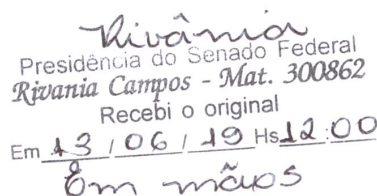 Rivânia
Presidência do Senado Federal
Rivania Campos - Mat. 300862
Recebi o original
Em 13 / 06 / 19 Hs 12:00
Em mãos